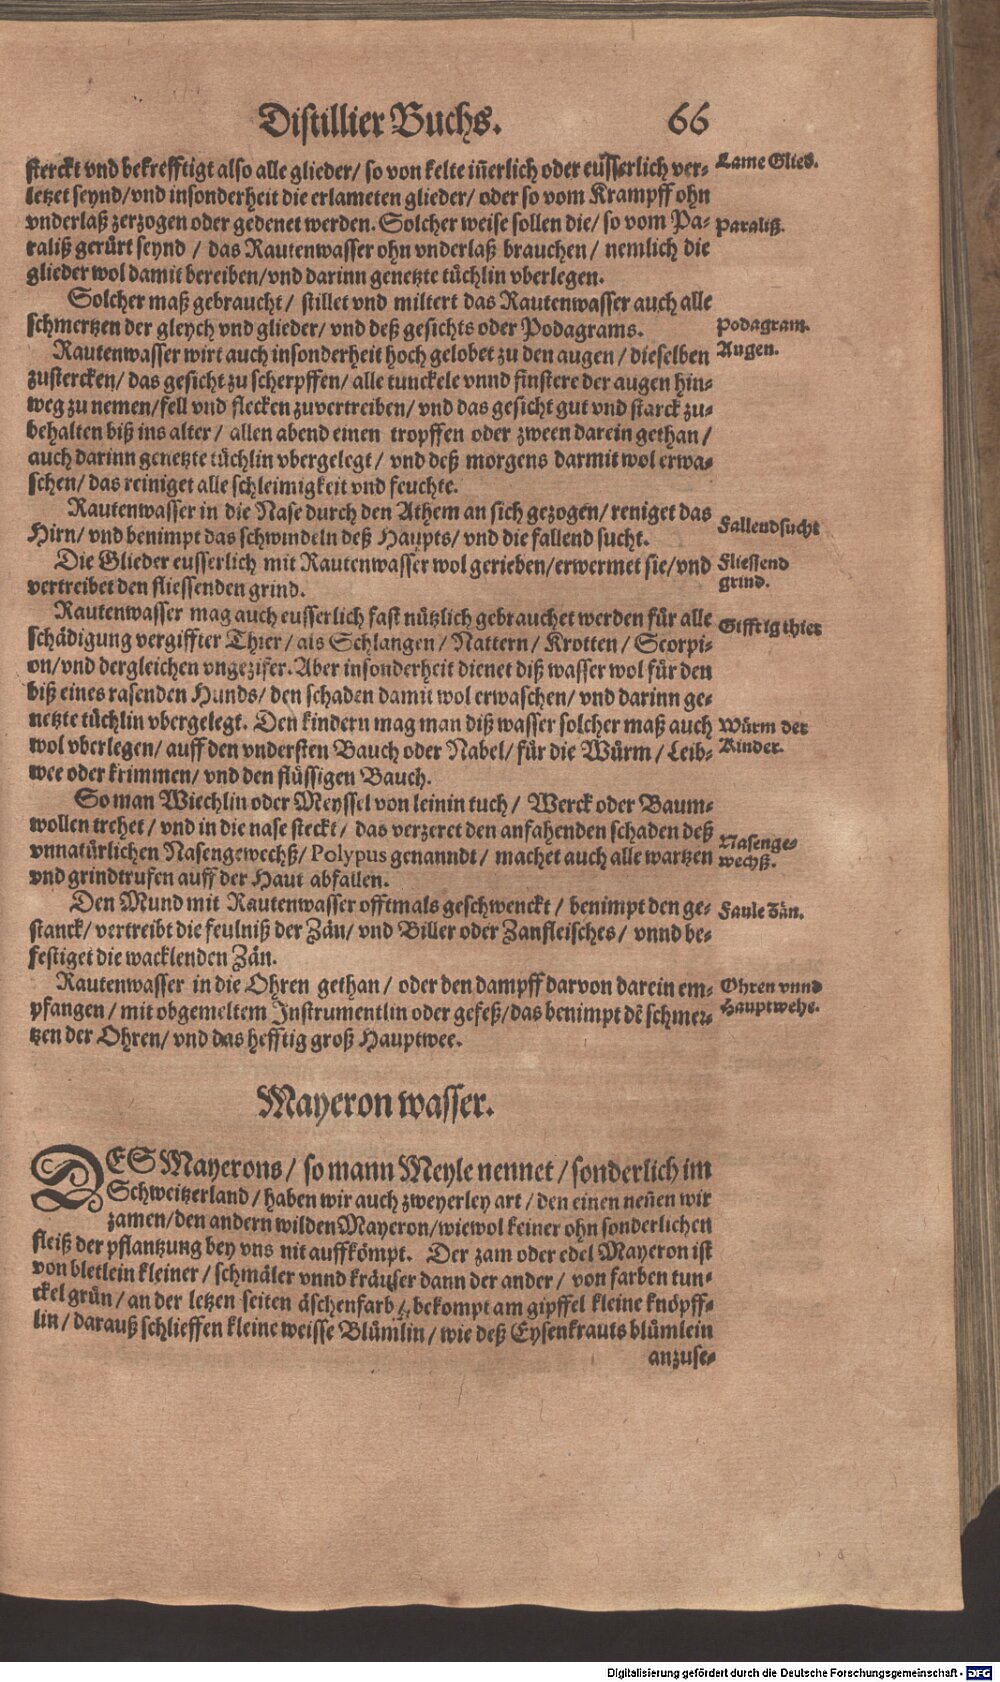 Distillier Buchs. 66
sterckt vnd bekrefftigt also alle glieder/ so von kelte iñerlich oder eusserlich ver-
letzet seynd/vnd insonderheit die erlameten glieder/ oder so vom Krampff ohn
vnderlaß zerzogen oder gedenet werden. Solcher weise sollen die/ so vom Pa-
raliß gerürt seynd / das Rautenwasser ohn vnderlaß brauchen / nemlich die
glieder wol damit bereiben/vnd darinn genetzte tüchlin vberlegen.
Lame Glied.
Paraliß.
Solcher maß gebraucht/ stillet vnd miltert das Rautenwasser auch alle
schmertzen der gleych vnd glieder/ vnd deß gesichts oder Podagrams.
Podagram.
Rautenwasser wirt auch insonderheit hoch gelobet zu den augen / dieselben
zustercken/ das gesicht zu scherpffen/ alle tunckele vnnd finstere der augen hin-
weg zu nemen/fell vnd flecken zuvertreiben/ vnd das gesicht gut vnd starck zu-
behalten biß ins alter/ allen abend einen tropffen oder zween darein gethan/
auch darinn genetzte tüchlin vbergelegt/ vnd deß morgens darmit wol erwa-
schen/ das reiniget alle schleimigkeit vnd feuchte.
Augen.
Rautenwasser in die Nase durch den Athem an sich gezogen/ reniget das
Hirn/ vnd benimpt das schwindeln deß Haupts/ vnd die fallend sucht.
Fallendsucht
Die Glieder eusserlich mit Rautenwasser wol gerieben/erwermet sie/vnd
vertreibet den fliessenden grind.
Fliessend
grind.
Rautenwasser mag auch eusserlich fast nützlich gebrauchet werden für alle
schädigung vergiffter Thier/ als Schlangen/ Nattern/ Krotten/ Scorpi-
on/vnd dergleichen vngezifer. Aber insonderheit dienet diß wasser wol für den
biß eines rasenden Hunds/ den schaden damit wol erwaschen/ vnd darinn ge-
netzte tüchlin vbergelegt. Den kindern mag man diß wasser solcher maß auch
wol vberlegen/ auff den vndersten Bauch oder Nabel/ für die Würm/ Leib-
wee oder krimmen/ vnd den flüssigen Bauch.
Gifftig thier
Würm der
Kinder.
So man Wiechlin oder Meyssel von leinin tuch/ Werck oder Baum-
wollen trehet/ vnd in die nase steckt/ das verzeret den anfahenden schaden deß
vnnatürlichen Nasengewechß/ Polypus genanndt/ machet auch alle wartzen
vnd grindtrufen auff der Haut abfallen.
Nasenge-
wechß.
Den Mund mit Rautenwasser offtmals geschwenckt/ benimpt den ge-
stanck/ vertreibt die feulniß der Zän/ vnd Biller oder Zanfleisches/ vnnd be-
festiget die wacklenden Zän.
Faule Zän.
Rautenwasser in die Ohren gethan/ oder den dampff darvon darein em-
pfangen/ mit obgemeltem Instrumentlin oder gefeß/das benimpt dẽ schmer-
tzen der Ohren/ vnd das hefftig groß Hauptwee.
Ohren vnnd
Hauptwehe.
Mayeron wasser.
DES Mayerons/ so mann Meyle nennet/ sonderlich im
Schweitzerland/ haben wir auch zweyerley art/ den einen neñen wir
zamen/den andern wilden Mayeron/wiewol keiner ohn sonderlichen
fleiß der pflantzung bey vns nit auffkömpt. Der zam oder edel Mayeron ist
von bletlein kleiner/ schmäler vnnd kräuser dann der ander/ von farben tun-
ckel grün/ an der letzen seiten äschenfarb/ bekompt am gipffel kleine knöpff-
lin/ darauß schlieffen kleine weisse Blümlin/ wie deß Eysenkrauts blümlein
anzuse-
Digitalisierung gefördert durch die Deutsche Forschungsgemeinschaft - DFG